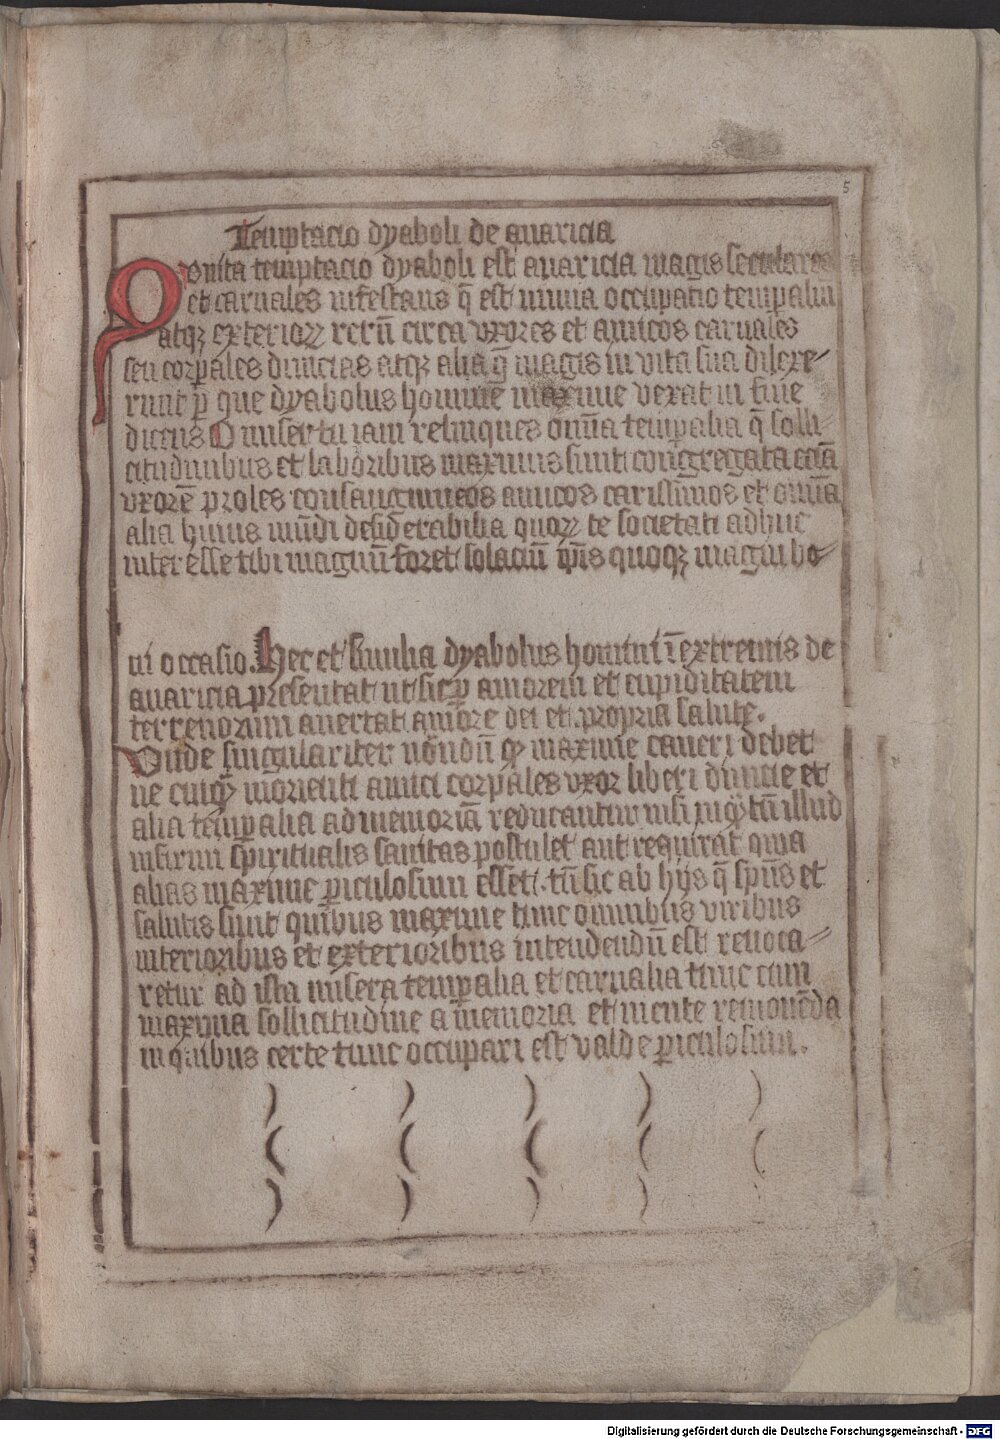 5
Temptacio dyaboli de auaricia
Quinta temptacio dyaboli est auaricia magis seculares
et carnales infestans q̄ est nimia occupatio tempaliū
atqꝫ exterioꝝ rerū circa vxores et amicos carnales
seu corpales diuicias atqꝫ alia q̄ magis in vita sua dilexe⸗
runt p que dyabolus hominē maxime vexat in fine
dicens O miser tu iam relinques omīa tempalia q̄ solli⸗
citudinibus et laboribus maximis sunt congregata ecīā
vxorē proles consanguineos amicos carissimos et omīa
alia huius mūdi desiderabilia quoꝝ te societati adhuc
inter esse tibi magnū foret solaciū ip̄is quoqꝫ magni bo⸗
ni occasio. Hec et similia dyabolus homini ī extremis de
auaricia presentat ut sic p amorem et cupiditatem
terrenorum auertat amore dei et propria salute.
Unde singulariter nōndū qꝫ maxime caueri debet
ne cuiqꝫ morienti amici corpales vxor liberi diuicie et
alia tempalia ad memoriā reducantur nisi inqꝫtū illud
infirmi spiritualis sanitas postulet aut requirat quia
alias maxime piculosum esset. tū sic ab hijs q̄ spūs et
salutis sunt quibus maxime tunc omnibus viribus
interioribus et exterioribus intendendū est reuoca⸗
retur ad ista misera tempalia et carnalia tunc cum
maxima sollicitudine a memoria et mente remouēda
in quibus certe tunc occupari est valde piculosum.
Digitalisierung gefördert durch die Deutsche Forschungsgemeinschaft - DFG